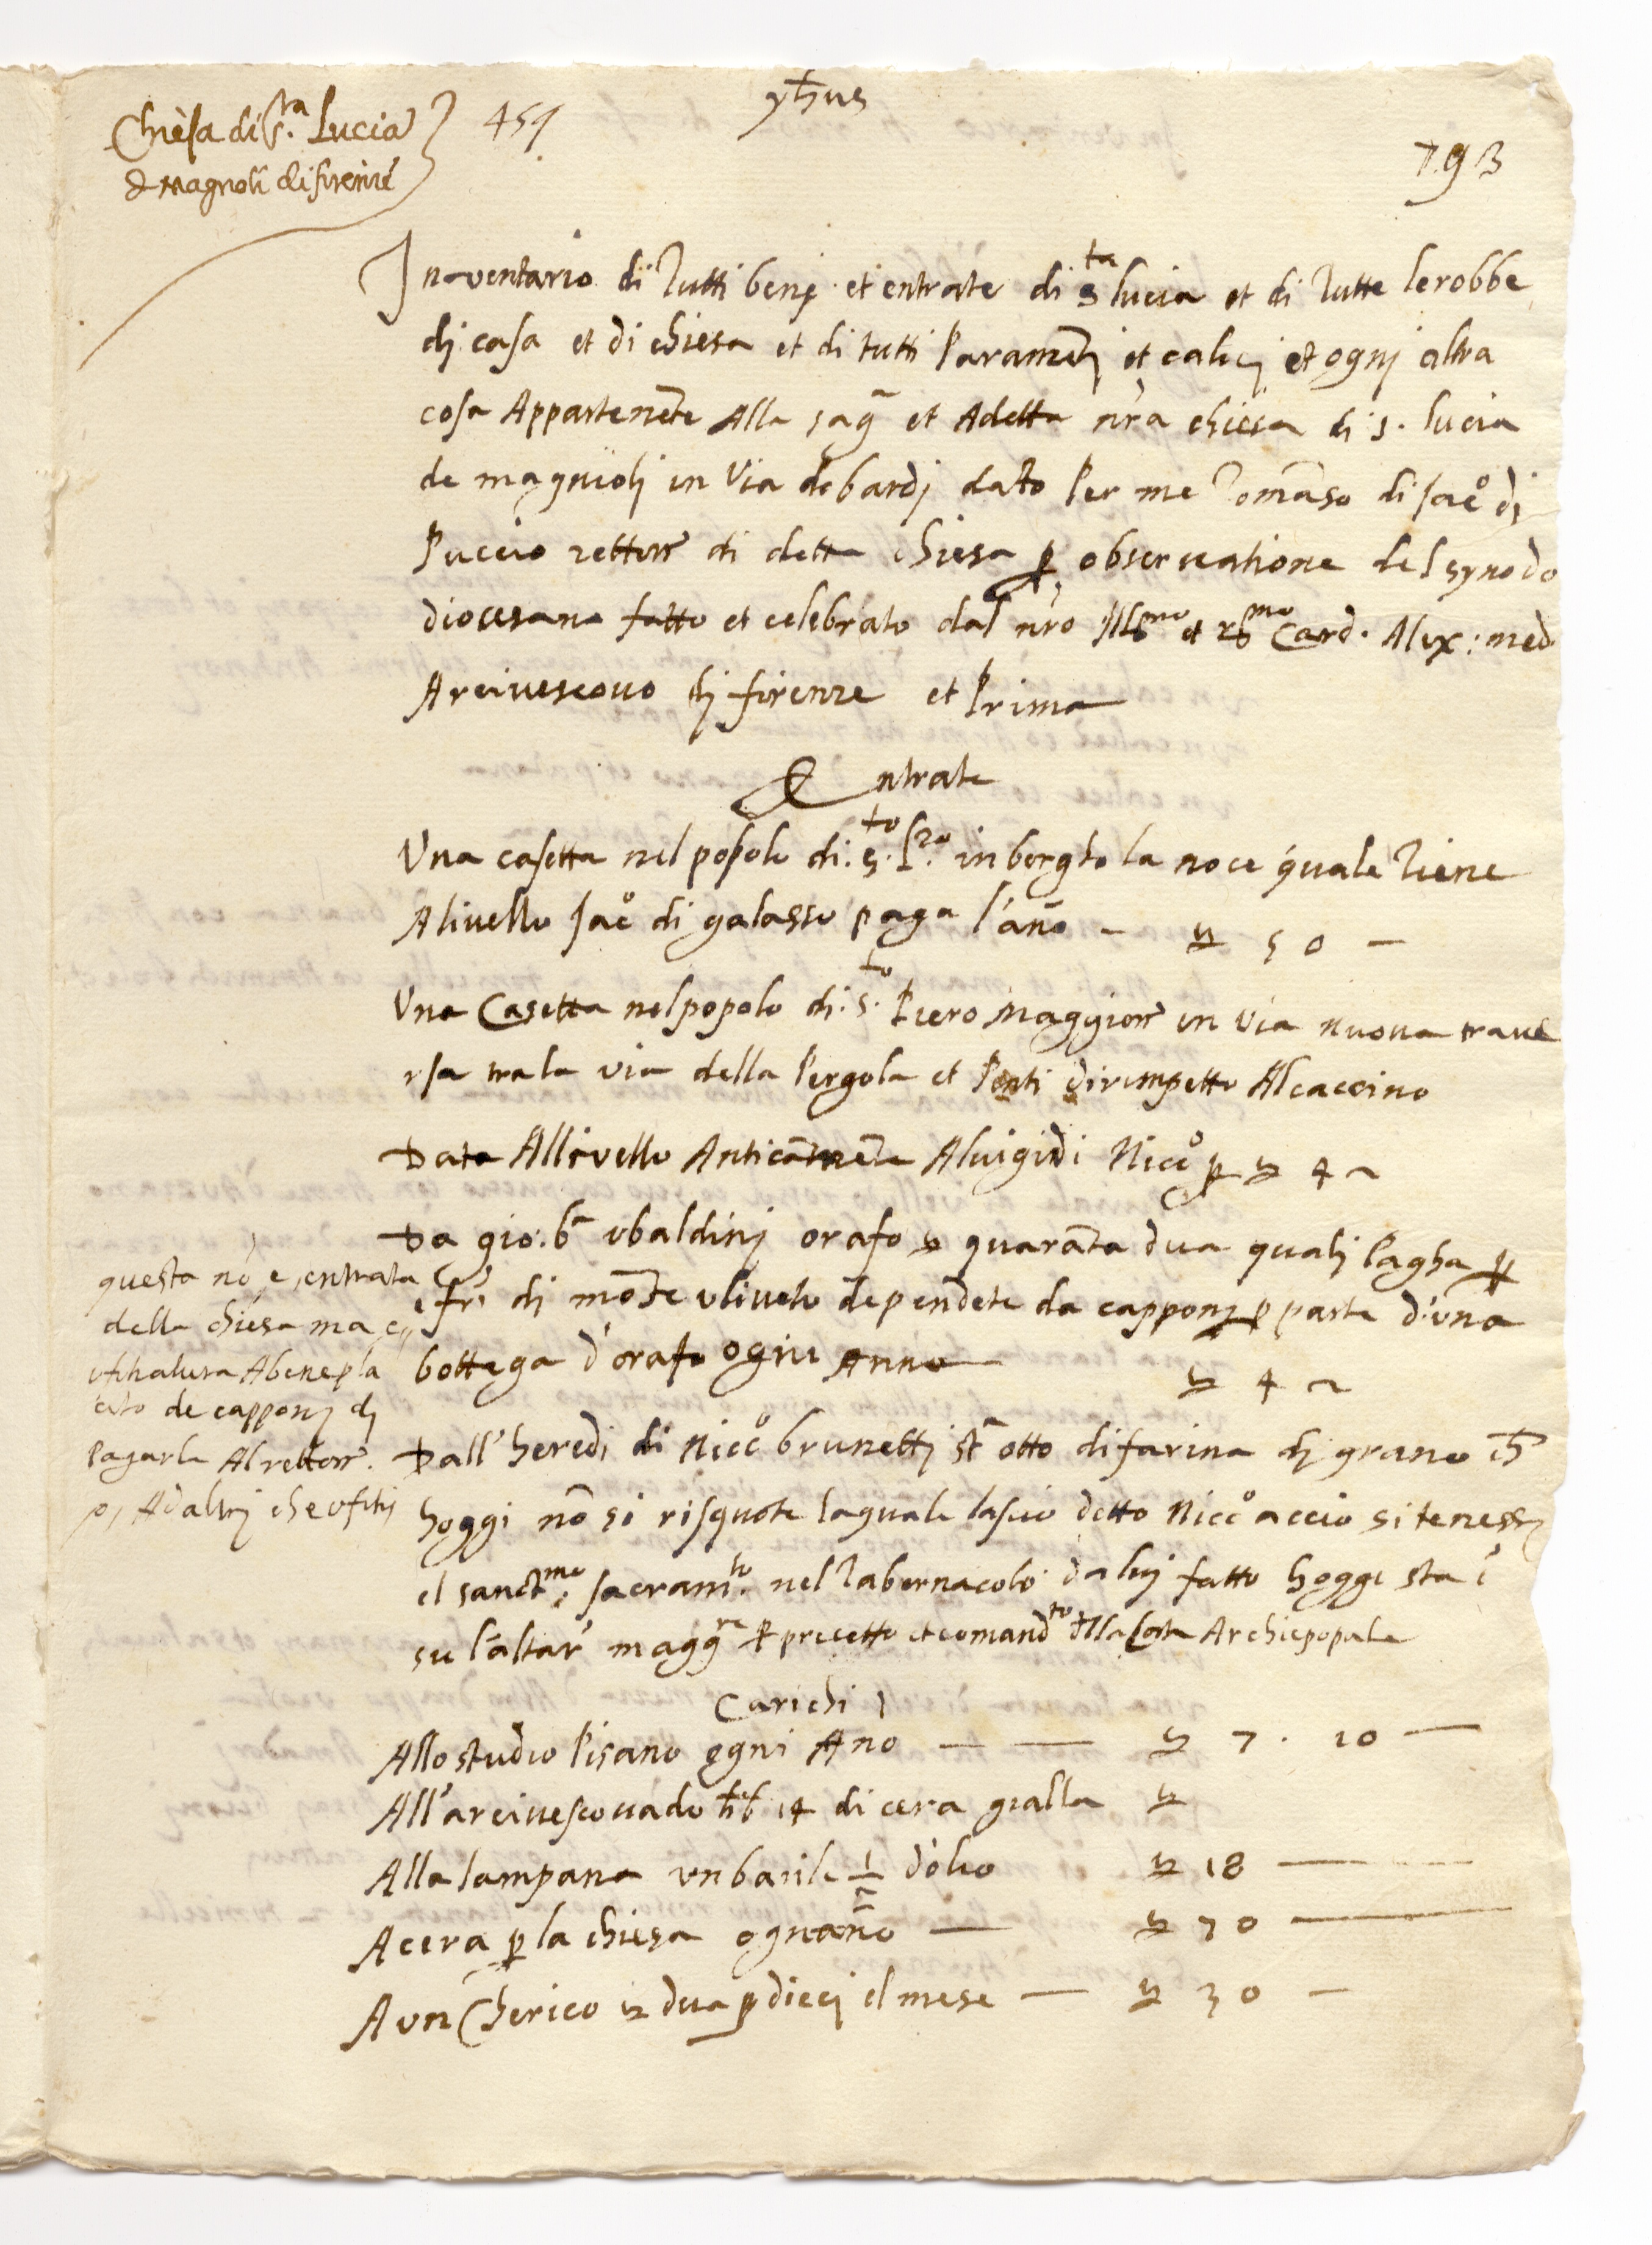 yħus
Chiesa di S.ta Lucia
de Magnoli di firenze
459
793
Inventario di Tutti benj et entrate di sta lucia et di Tutte lerobbe
dj casa et di chiesa et di tutti Paramētj et calicj et ognj altra
cosa Appartenēte Alla sag et Adetta nr̄a chiesa di s. lucia
de magnioli in Via de bardj dato Per me Tomāso di Jac° di
Puccio rettorr di detta chiesa ꝑ observatione del synodo
diocesano fatto et celebrato dal nr̄o Illmo et rmo Card. Alex: med
Arcivescouo dj firenze et Prima
Entrate
Vna casetta nel popolo di .s.to fr.no in borgho la noce quale Tiene
Alivello Jac° di galasso paga l'año - 50 -
Vna Casetta nel popolo di .s.to Piero Maggiorr in Via nuova trave
rsa tra la via della Pergola et Pinti dirimpetto Alcaccino
Data Allivello Anticāmēte Aluigi di Nicc° ꝑ 4 ~
Da gio: bā vbaldinj orafo quarāta dua qualj Pagha ꝑ
e fri dj mōte vliveto dependēte da capponj ꝑ parte d'una
bottega d'orafo ogni Anno 4 ~
questa nō e entrata
della chiesa ma e
vfitiatura Abenepla
cito de capponj dj
Pagarla Al rettorr
o, Ad altrj che vfitij
Dall'heredi di Nicc° brunettj st otto di farina dj grano
hoggi nō si risquote laquale lascio detto Nicc° accio si tenessj
el sanctmo sacramto. nel Tabernacolo da luj fatto hoggi sta ī
su l'altar maggre ꝑ precetto et comandto della Corte Archiepopale
Carichi
Allo studio Pisano ogni Ano — — 7 . 10 —
All'arcivescouado 14 di cera gialla
Alla lampana vn barile 1/2 d'olio 18 —
A cera ꝑ la chiesa ogniaño — 70 —
A vn Cherico dua ꝑ diecj il mese — 30 —